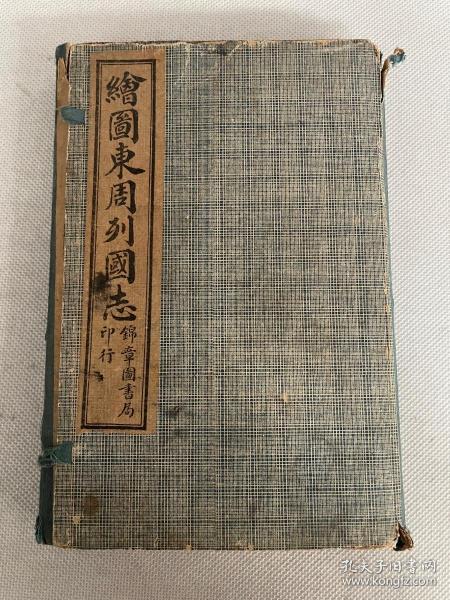 繪圖東周列國志
錦章圖書局
印行
孔夫子旧书网
www.kongfz.com